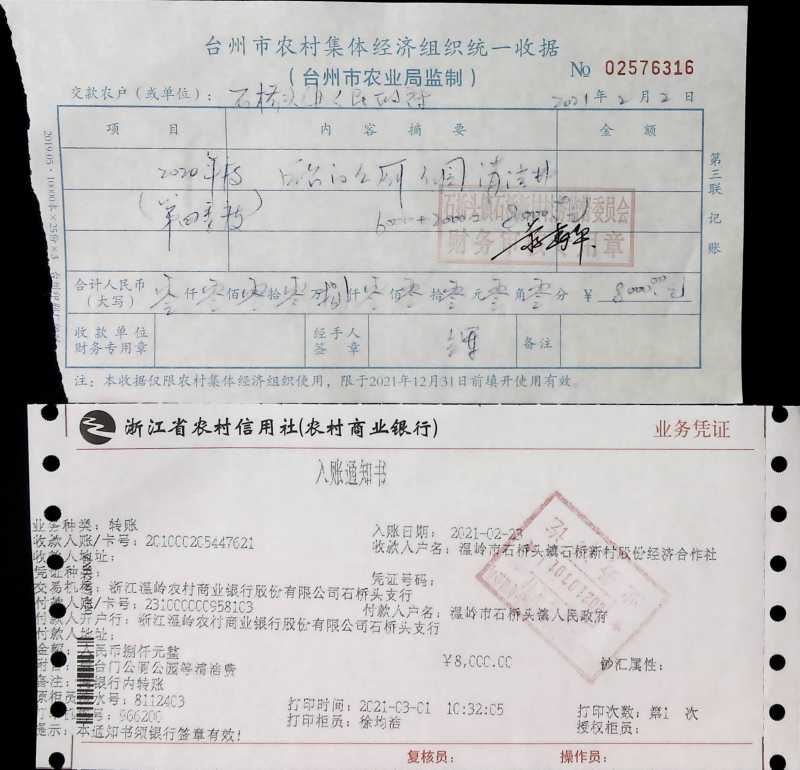 台州市农村集体经济组织统一收据
(台州市农业局监制)
№ 02576316
交款农户(或单位): 石桥头镇人民政府 2021年2月2日
项 目 内 容 摘 要 金 额
2020年度
(第四季度)
公厕 公园 清洁
6000+2000=8000元
石桥头镇石桥新村村务监督委员会
财务 专用章
合计人民币
(大写) 零仟零佰零拾零万捌仟零佰 拾零元零角零分 ¥ 8000.00元
收款单位
财务专用章
经手人
签 章
备注
注:本收据仅限农村集体经济组织使用,限于2021年12月31日前填开使用有效。
第三联 记账
2019.05·10000本×25份×3
浙江省农村信用社(农村商业银行)
业务凭证
入账通知书
业务种类: 转账 入账日期: 2021-02-23
收款人账/卡号: 201000205447621 收款人户名: 温岭市石桥头镇石桥新村股份经济合作社
收款人地址:
凭证种类: 凭证号码:
交易机构: 浙江温岭农村商业银行股份有限公司石桥头支行
付款人账/卡号: 231000000958103 付款人户名: 温岭市石桥头镇人民政府
付款人开户行: 浙江温岭农村商业银行股份有限公司石桥头支行
付款人地址:
金额: 人民币捌仟元整 ¥8,000.00 钞汇属性:
台门公厕公园等清洁费
备注: 银行内转账
原柜员流水号: 8112403 打印时间: 2021-03-01 10:32:05 打印次数: 第1 次
号: 966200 打印柜员: 徐均浩 授权柜员:
提示: 本通知书须银行签章有效!
复核员: 操作员: